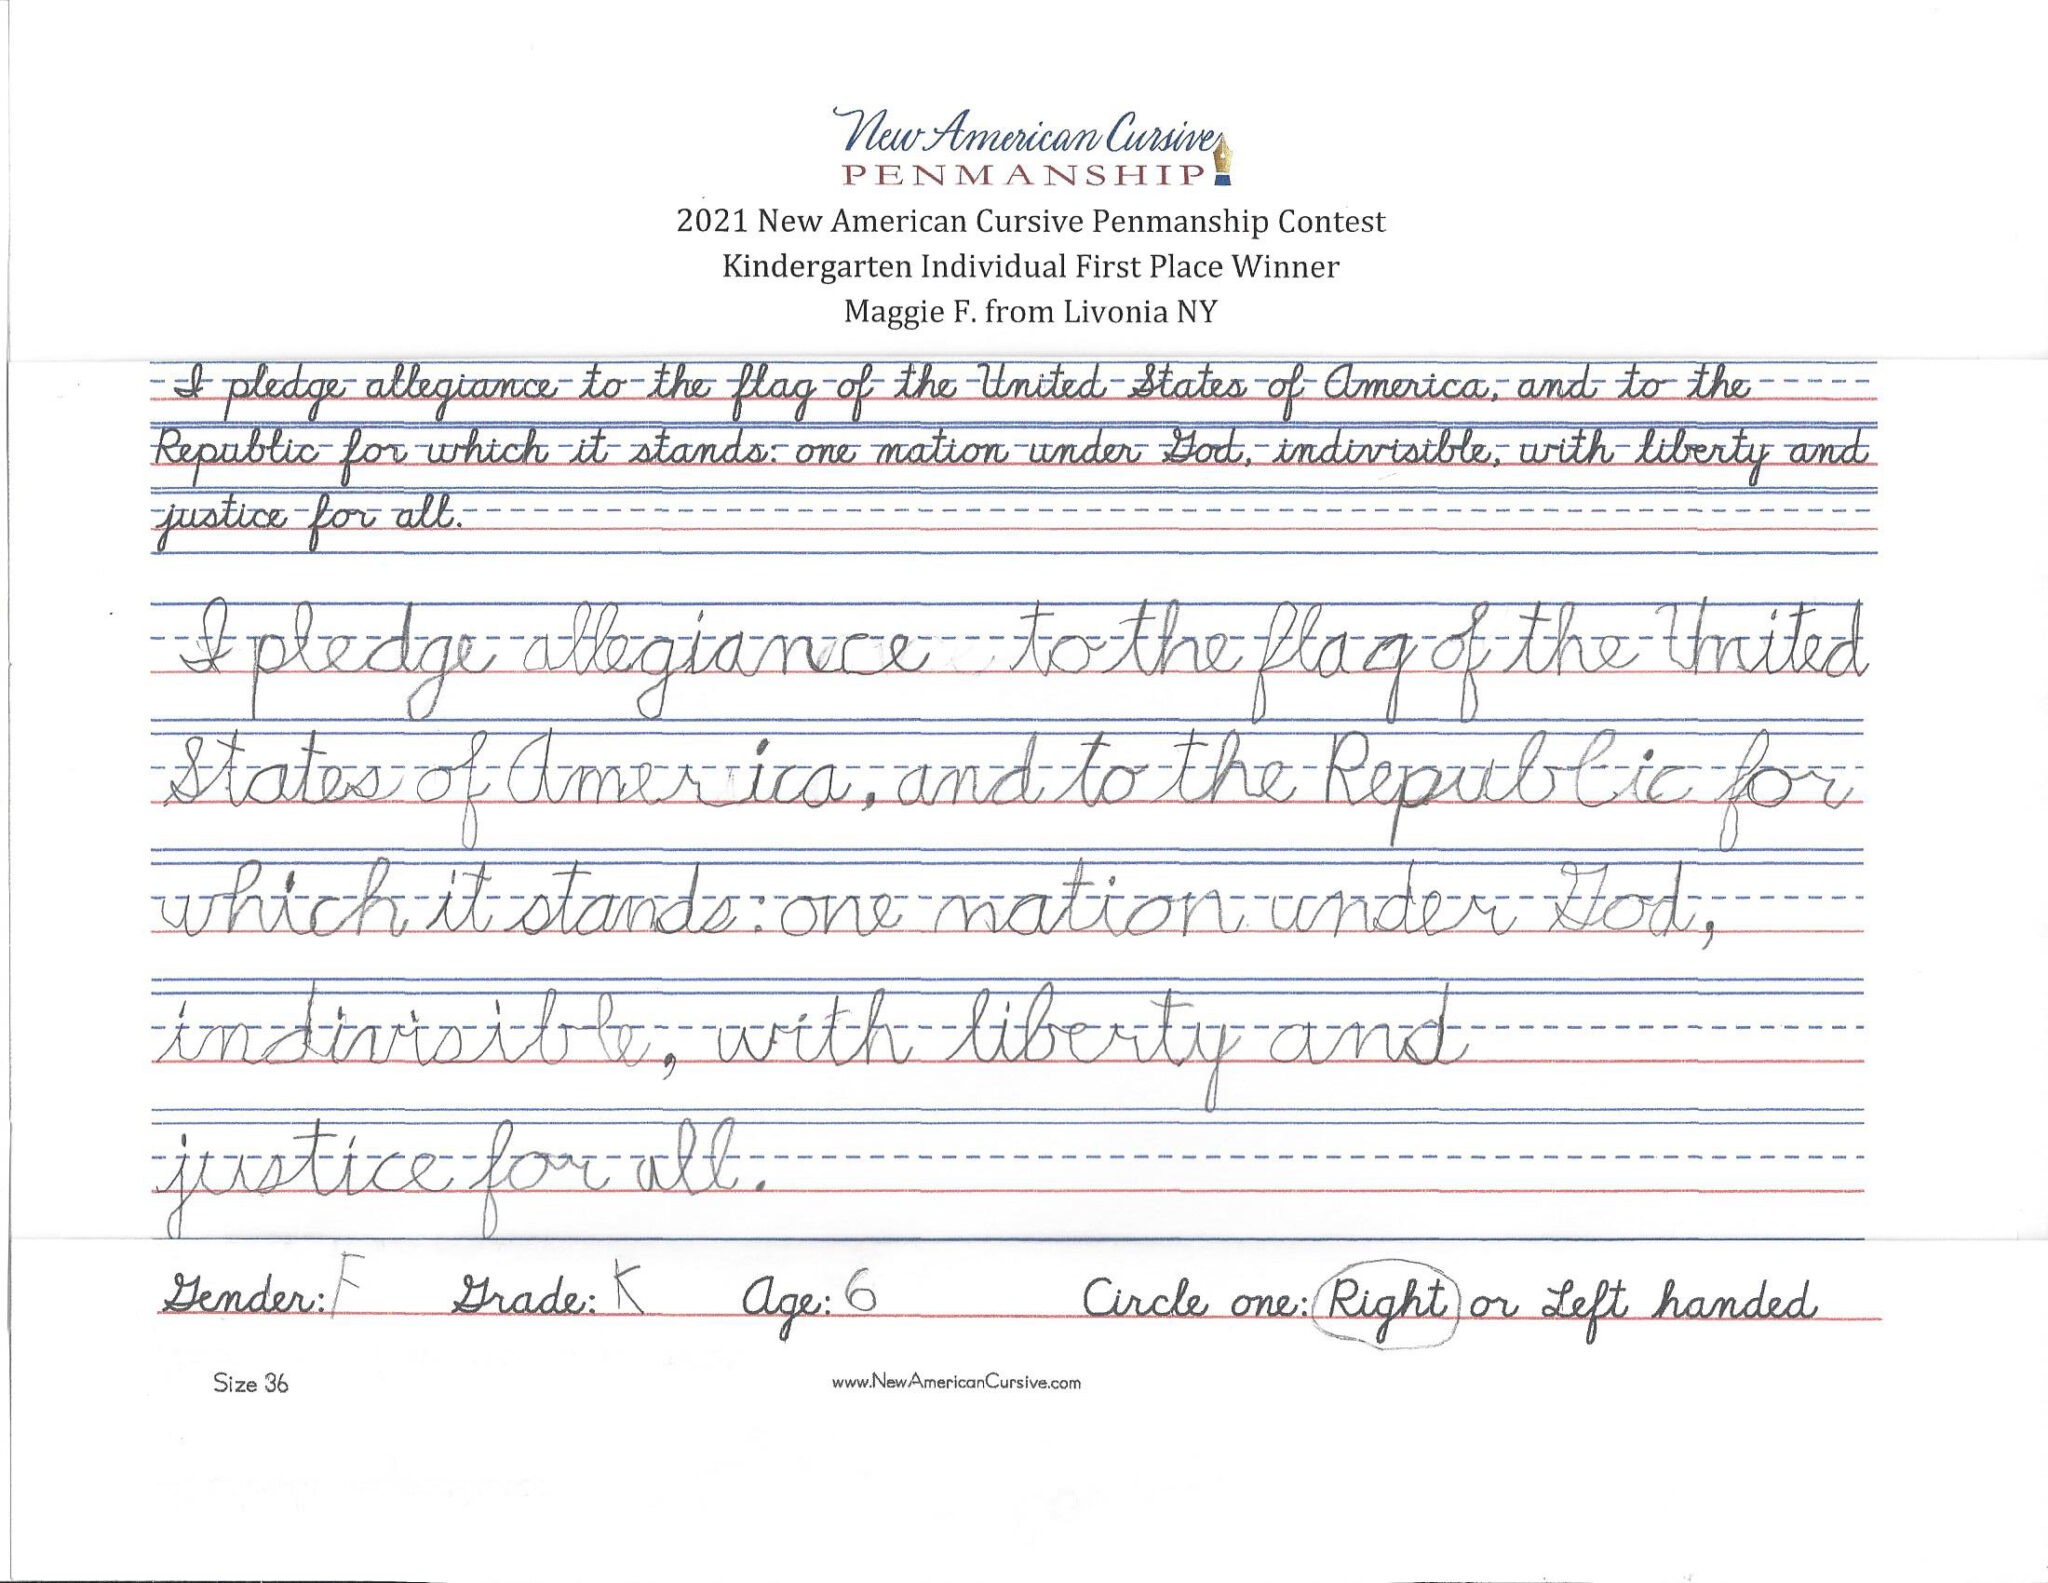 New American Cursive
PENMANSHIP
2021 New American Cursive Penmanship Contest
Kindergarten Individual First Place Winner
Maggie F. from Livonia NY
I pledge allegiance to the flag of the United States of America, and to the
Republic for which it stands: one nation under God, indivisible, with liberty and
justice for all.
I pledge allegiance to the flag of the United
States of America, and to the Republic for
which it stands: one nation under God,
indivisible, with liberty and
justice for all.
Gender: F Grade: K Age: 6 Circle one: Right or Left handed
Size 36 www.NewAmericanCursive.com